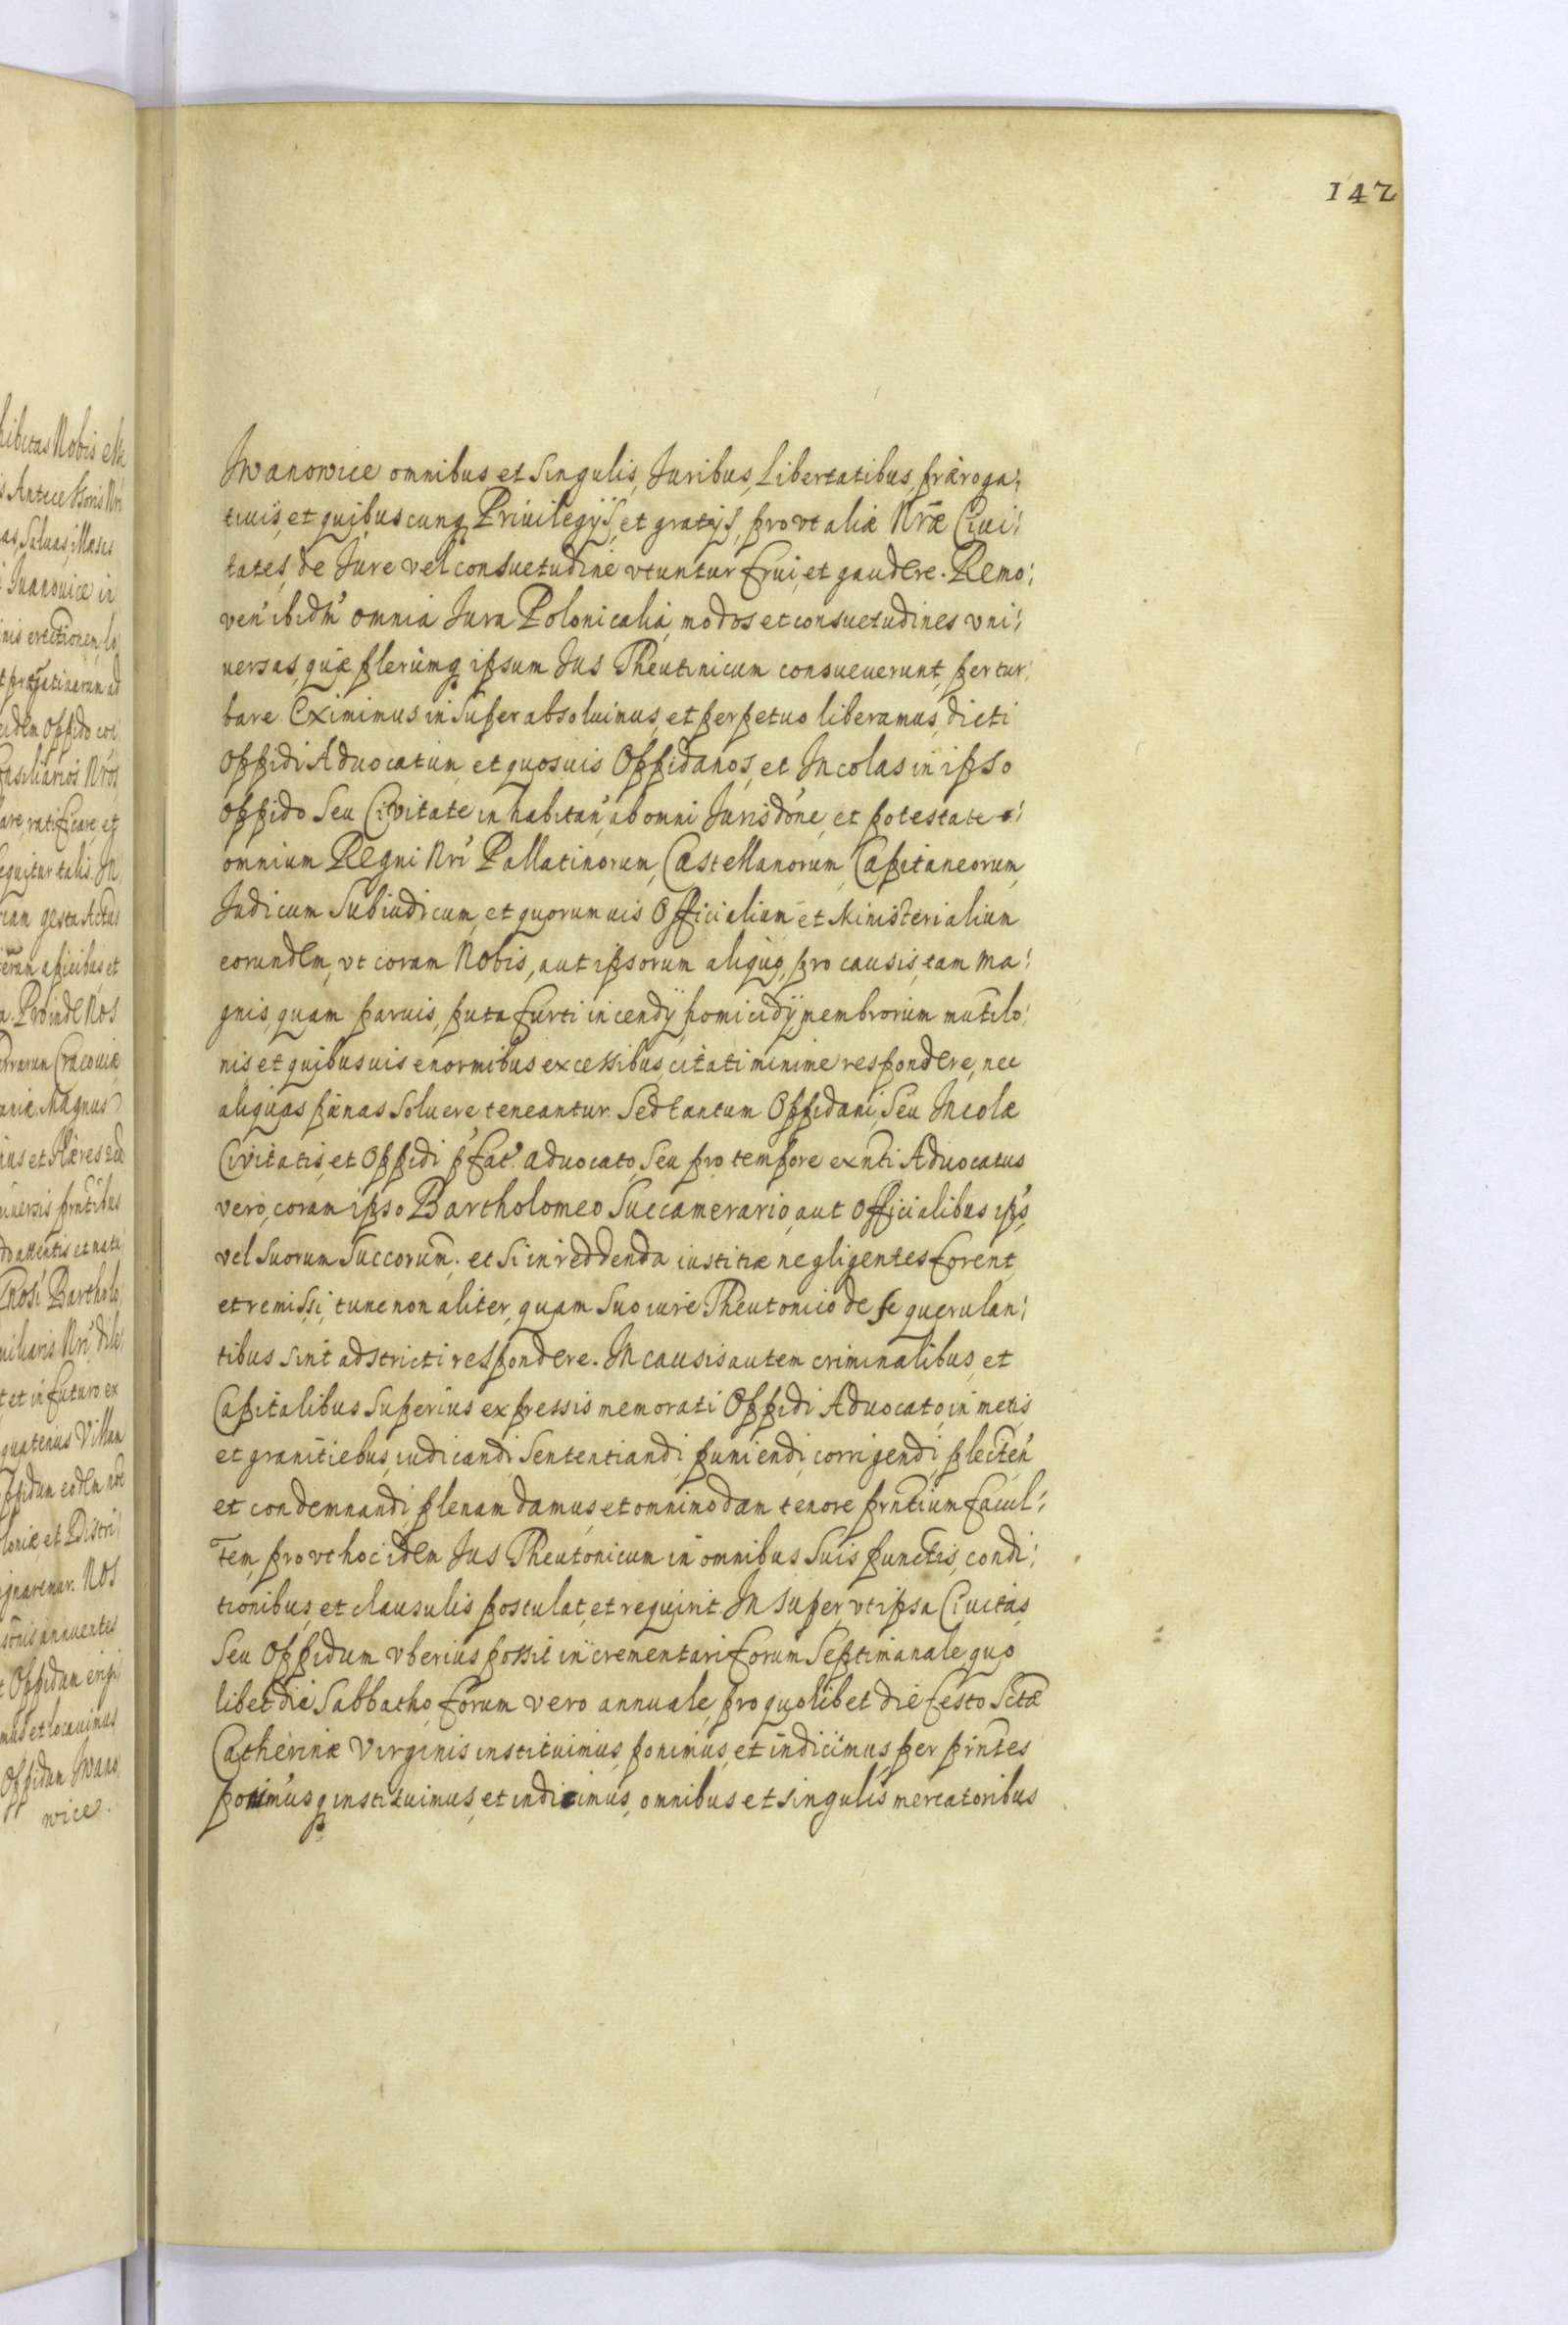 142
Iwanowice omnibus, et Singulis, Juribus, Libertatibus, præroga:
tiuis, et quibuscunq Priuilegijs, et gratijs, provt aliæ Nræ Ciui:
tates, de Jure vel consuetudine vtuntur frui, et gaudere. Remo:
ven' ibidm' omnia Jura Polonicalia, modos et consuetudines vni:
versas, quæ plerumq ipsum Jus Theutinicum consueuerunt, pertur:
bare Eximimus insuper absoluimus, et perpetuo liberamus, dicti
Oppidi Aduocatum, et quosuis Oppidanos, et Incolas in ipso
Oppido Seu Civitate inhabitan', ab omni Jurisdone, et potestate
omnium Regni Nri Pallatinorum, Castellanorum, Capitaneorum,
Judicum Subiudicum, et quorumuis Officialium et Ministerialium
eorundem, vt coram Nobis, aut ipsorum aliquo, pro causis, tam ma:
gnis, quam paruis, puta furti incendij homicidij, membrorum mutilo:
nis et quibusuis enormibus excessibus, citati minime respondere, nec
aliquas pænas Soluere teneantur. Sed tantum Oppidani, Seu Incolæ
Civitatis, et Oppidi p'fat' aduocato, Seu pro tempore exnti Aduocatus
vero, coram ipso Bartholomeo Succamerario, aut Officialibus ips,
vel Suorum Succorum. et Si in reddenda iustitiæ negligentes forent,
et remissi, tunc non aliter, quam Suo iure Theutonico de se querulan:
tibus sint adstricti respondere. In causis autem criminalibus, et
Capitalibus Superius expressis memorati Oppidi Aduocato, in metis,
et granitiebus, iudicandi, Sententiandi, puniendi, corrigendi, plecten'
et condemnandi, plenam damus, et omnimodam tenore prntium facul:
tem, provt hoc idem Jus Theutonicum in omnibus Suis punctis, condi:
tionibus, et clausulis postulat, et requirit. Insuper, vt ipsa Ciuitas,
Seu Oppidum vberius possit incrementari forum Septimanale quo
libet die Sabbatho, forum vero annuale, pro quolibet die festo Sctæ
Catherinæ Virginis instituimus, ponimus, et indicimus per prntes
ponimusq instituimus, et indicimus, omnibus et singulis mercatoribus